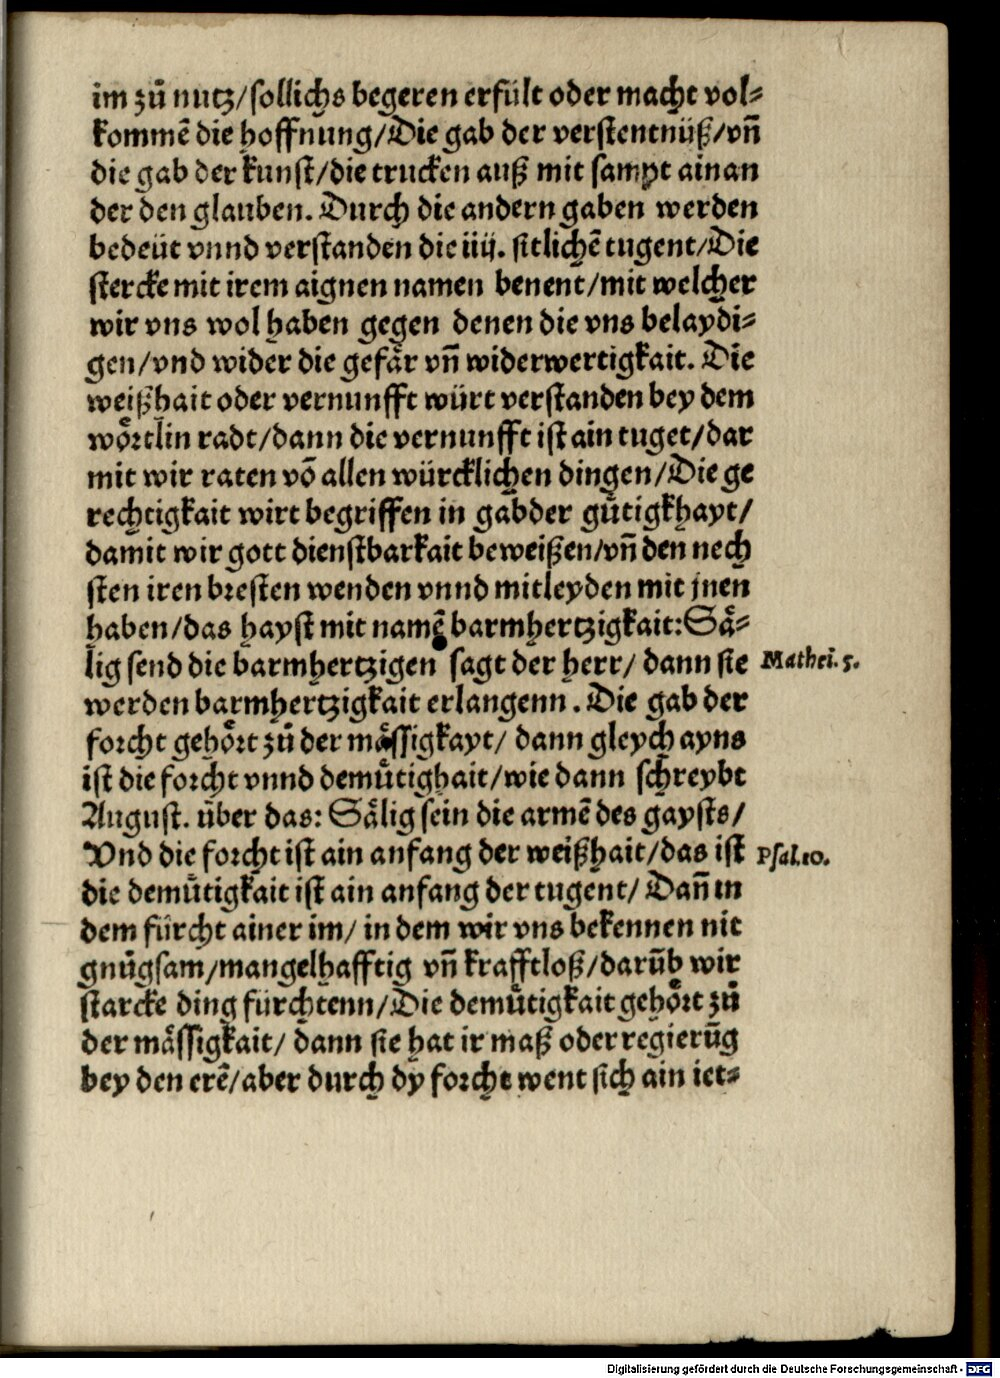 im zů nutz/sollichs begeren erfült oder macht vol⸗
kommē die hoffnung/Die gab der verstentnüß/vñ
die gab der kunst/die trucken auß mit sampt ainan
der den glauben. Durch die andern gaben werden
bedeüt vnnd verstanden die iiij. sitlichē tugent/Die
stercke mit irem aignen namen benent/mit welcher
wir vns wol haben gegen denen die vns belaydi⸗
gen/vnd wider die gefår vñ widerwertigkait. Die
weißhait oder vernunfft würt verstanden bey dem
wörtlin radt/dann die vernunfft ist ain tuget/dar
mit wir raten vō allen würcklichen dingen/Die ge
rechtigkait wirt begriffen in gabder gůtigkhayt/
damit wir gott dienstbarkait beweißen/vñ den nech
sten iren bresten wenden vnnd mitleyden mit jnen
haben/das hayst mit namē barmhertzigkait:Sä⸗
lig send die barmhertzigen sagt der herr/ dann sie
Mathei. 5.
werden barmhertzigkait erlangenn. Die gab der
forcht gehört zů der mässigkayt/ dann gleych ayns
ist die forcht vnnd demůtighait/wie dann schreybt
August. über das: Sälig sein die armē des gaysts/
Vnd die forcht ist ain anfang der weißhait/das ist
Psal.10.
die demůtigkait ist ain anfang der tugent/ Dañ in
dem fürcht ainer im/ in dem wir vns bekennen nit
gnůgsam/mangelhafftig vñ krafftloß/darūb wir
starcke ding fürchtenn/Die demůtigkait gehört zů
der mässigkait/ dann sie hat ir maß oder regierūg
bey den erē/aber durch dy forcht went sich ain iet⸗
Digitalisierung gefördert durch die Deutsche Forschungsgemeinschaft - DFG